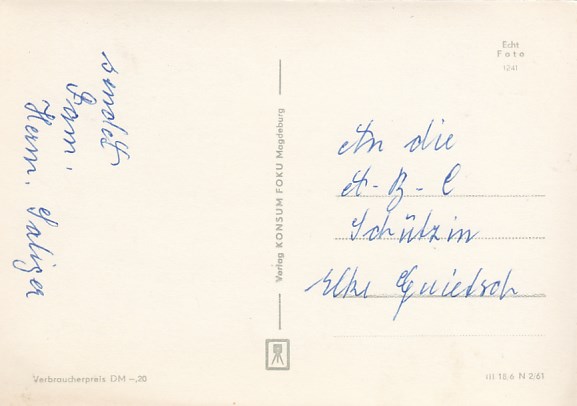 sendet
Fam.
Herm. Saliger
Verlag KONSUM FOKU Magdeburg
Echt
Foto
1241
An die
A-B-C
Schützin
Elke Quietsch
Verbraucherpreis DM -,20
III 18 6 N 2/61